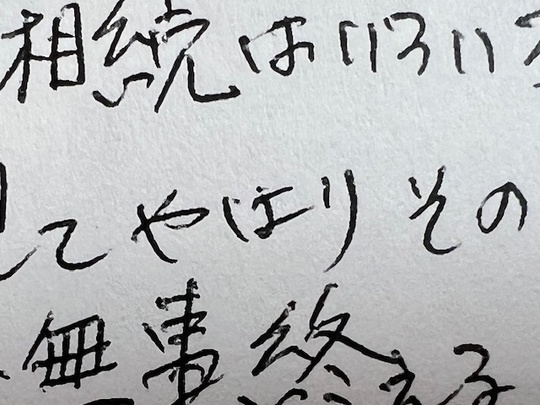 相続はいろいろ
してやはりその
無事終える